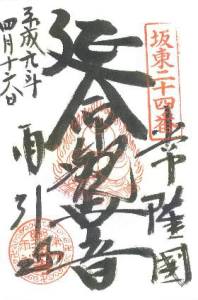 坂東二十四番
常陸國
延命観世音
雨引山
平成六年
四月十六日